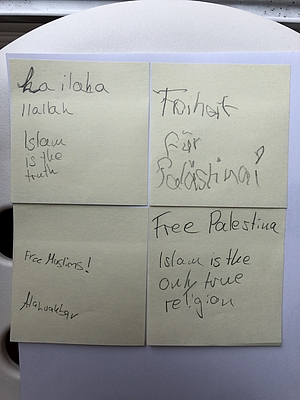 La ilaha
illallah
Islam
is the
truth
Freiheit
für
Palästina!
Free Muslims!
Alahuakbar
Free Palestina
Islam is the
only true
religion